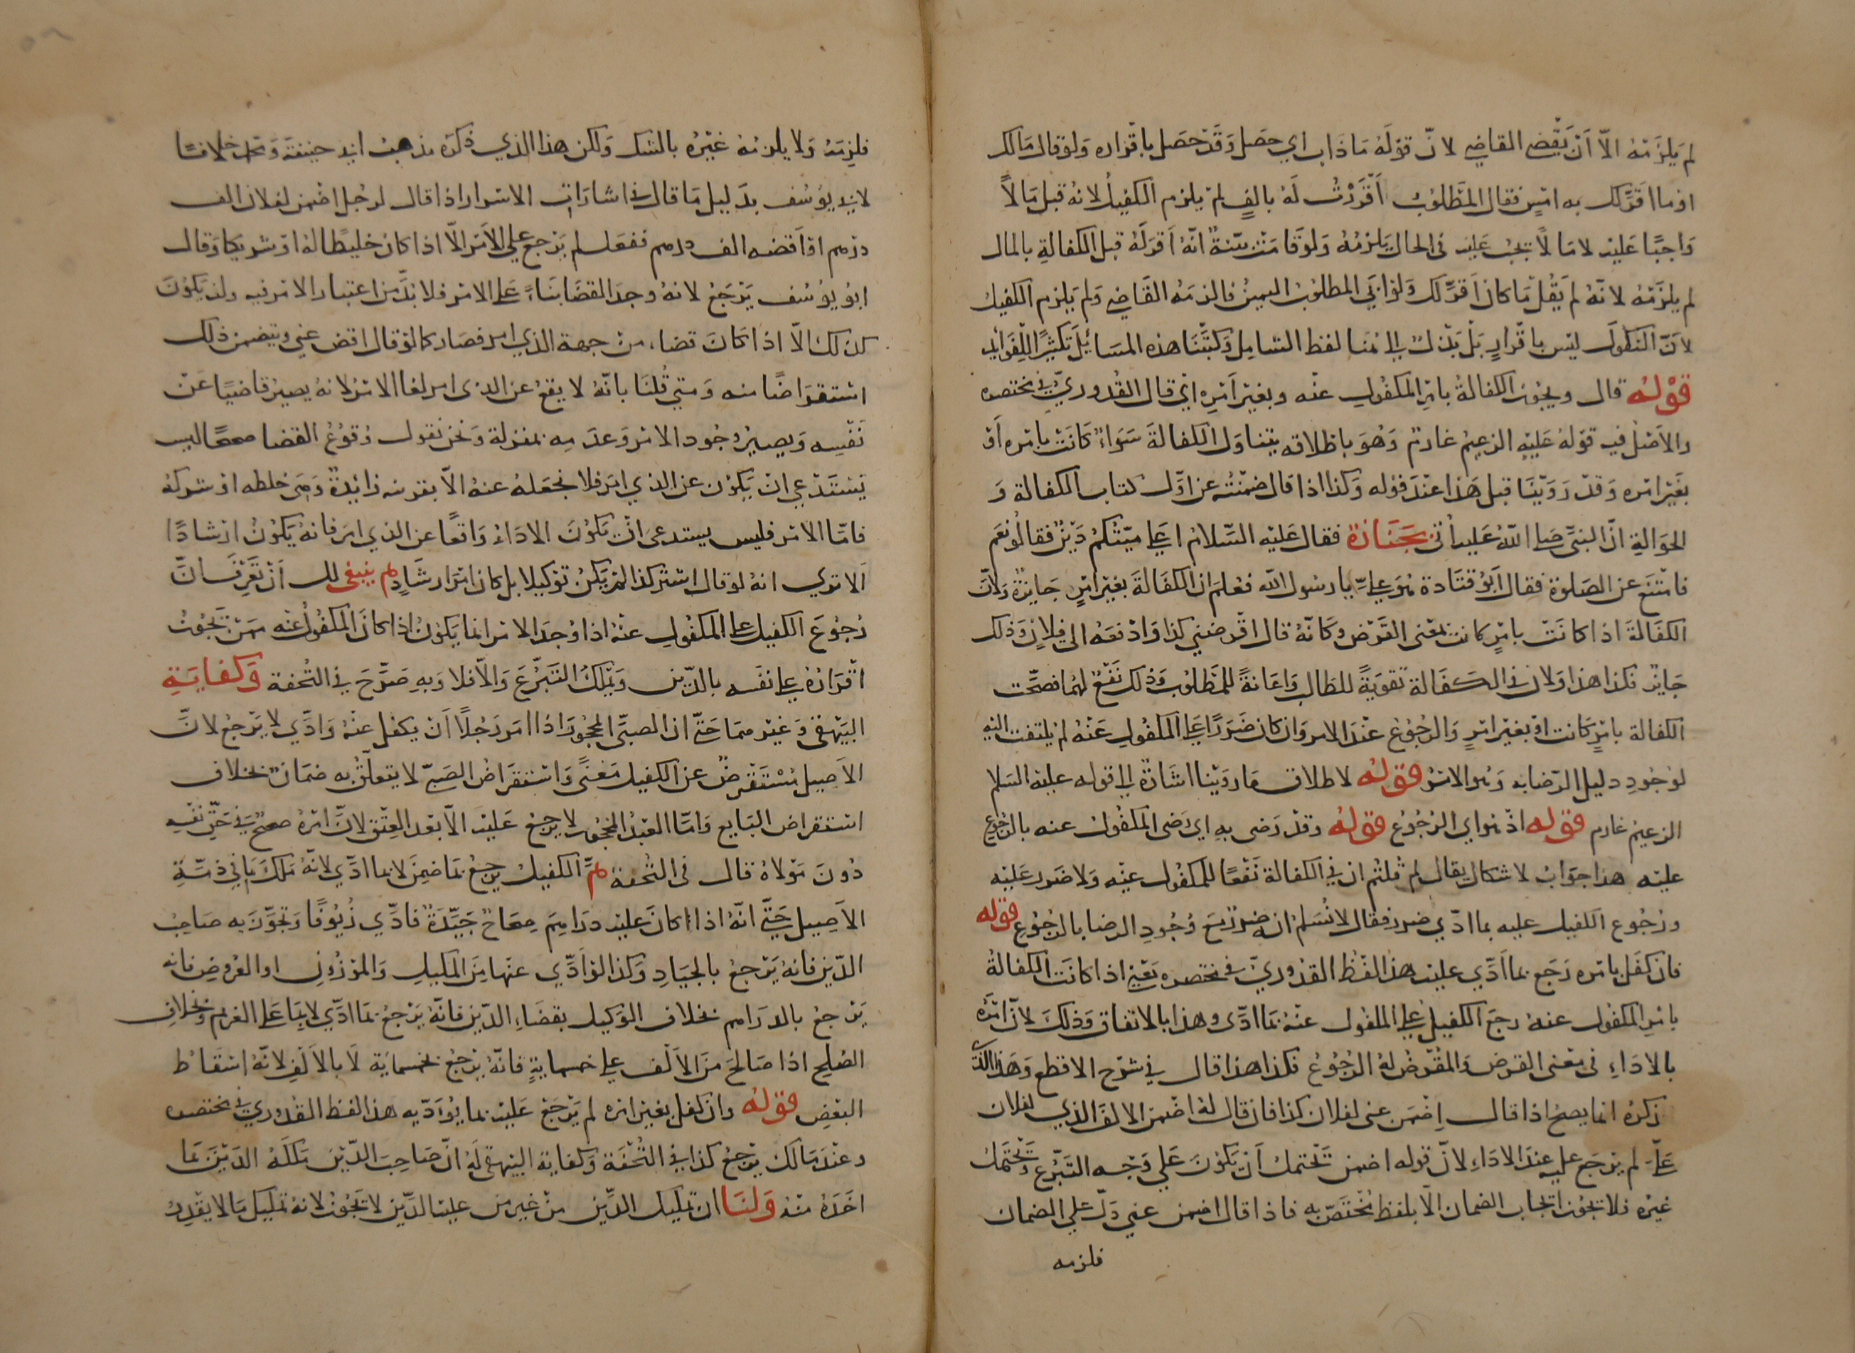 لم يلزمه الا ان يقضي القاضي لان قوله ماذاب اي حصل وقد حصل باقراره ولو قال مالك
او ما اقر لك به امس فقال المطلوب اقررت له بالف لم يلزم الكفيل لانه قبل مالاً
واجبًا عليه لا مالاً يجب عليه في الحال يلزمه ولو قامت بينة انه اقر له قبل الكفالة بالمال
لم يلزمه لانه لم يقل ما كان اقر لك ولو ابي المطلوب اليمين فالزمه القاضي ولم يلزم الكفيل
لان النكول ليس باقرار بل بذل الى هنا لفظ الشامل وكتبنا هذه المسائل تكثيرًا للفوائد
قوله قال ويجوز الكفالة بامر المكفول عنه وبغير امره اي قال القدوري في مختصره
والاصل فيه قوله عليه الزعيم غارم وهو باطلاقه يتناول الكفالة سواء كانت بامره او
بغير امره وقد روينا قبل هذا عند قوله وكذا اذا قال ضمنته عن اول كتاب الكفالة و
الحوالة ان النبي صلى الله عليه أتي بجنازة فقال عليه السلام اعلى ميتكم دين فقالوا نعم
فامتنع عن الصلوة فقال ابو قتادة هو علي يا رسول الله فعلم ان الكفالة بغير امر جايزة ولان
الكفالة اذا كانت بامر كانت بمعنى القرض وكانه قال اقرضني كذا وادفعه الى فلان وذلك
جايز فكذا هذا ولان في الكفالة تقوية للطالب واعانة للمطلوب وذلك نفع لهما فصحت
الكفالة بامر كانت او بغير امر والرجوع عند الامر وان كان ضررًا على المكفول عنه لم يلتفت اليه
لوجود دليل الرضا به وهو الامر قوله لاطلاق ما روينا اشارة الى قوله عليه السلام
الزعيم غارم قوله اذ هو اي الرجوع قوله وقد رضى به اي رضى المكفول عنه بالرجوع
عليه هذا جواب لاشكال يقال لم قلتم ان في الكفالة نفعا للمكفول عنه ولا ضرر عليه
ورجوع الكفيل عليه بما ادي ضرر فقال لا نسلم انه ضرر مع وجود الرضا بالرجوع قوله
فان كفل بامره رجع بما ادي عليه هذا لفظ القدوري في مختصره يعني اذا كانت الكفالة
بامر المكفول عنه رجع الكفيل على المكفول عنه بما ادي وهذا بالاتفاق وذلك لان امره
بالاداء في معنى القرض والمقرض له الرجوع فكذا هذا قال في شرح الاقطع وهذا الذي
ذكره انما يصح اذا قال اضمن عني لفلان كذا فان قال له اضمن الالف الذي لفلان
علي لم يرجع عليه عند الاداء لان قوله اضمن تحتمل ان يكون على وجه التبرع وتحتمل
غيره فلا يجوز ايجاب الضمان الا بلفظ يختص به فاذا قال اضمن عني دل على الضمان
فلزمه
فلزمه ولا يلزمه غيره بالشك ولكن هذا الذي ذكره مذهب ابي حنيفة ومحمد خلافا
لابي يوسف بدليل ما قال في اشارات الاسرار اذا قال لرجل اضمن لفلان الف
درهم او اقضه الف درهم ففعل لم يرجع على الامر الا اذا كان خليطا له او شريكا وقال
ابو يوسف يرجع لانه وجد القضا بناءً على الامر فلا بد من اعتبار الامر فيه ولن يكون
كذلك الا اذا كان قضاء من جهة الذي امر فصار كما لو قال اقض عني ويتضمن ذلك
استقراضًا منه ومتى قلنا بانه لا يقع عن الذي امر لغا الامر لانه يصير قاضيًا عن
نفسه ويصير وجود الامر وعدمه بمنزلة ونحن نقول وقوع القضا صحيحًا ليس
يستدعي ان يكون عن الذي امر فلا نجعله عنه الا بقرينة زايدة وهي خلطه او شركة
فاما الامر فليس يستدعي ان تكون الاداء واقعًا عن الذي امر فانه يكون ارشادًا
الا تري انه لو قال اشتر كذا لم يكن توكيلا بل كان امر ارشاد ثم ينبغي لك ان تعرف ان
رجوع الكفيل على المكفول عنه اذا وجد الامر انما يكون اذا كان المكفول عنه ممن تجوز
اقراره على نفسه بالدين ويملك التبرع والا فلا وبه صرح في التحفة وكفاية
البيهقي وغيرهما حتى ان الصبي المحجور اذا امر رجلًا ان يكفل عنه وادي لا يرجع لان
الاصيل مستقرض عن الكفيل معنىً واستقراض الصبي لا يتعلق به ضمان بخلاف
استقراض البايع واما العبد المحجور لا يرجع عليه الا بعد العتق لان امره صحيح في حق نفسه
دون مولاه قال في التحفة ثم الكفيل يرجع بما ضمن لا بما ادي لانه ملك ما في ذمة
الاصيل حتى انه اذا كان عليه دراهم صحاح جيدة فادي زيوفًا وتجوز به صاحب
الدين فانه يرجع بالجياد وكذا لو ادي عنها من المكيل والموزون او العروض فانه
يرجع بالدراهم بخلاف الوكيل بقضاء الدين فانه يرجع بما ادي لا بما على الغريم وبخلاف
الصلح اذا صالح من الالف على خمسماية فانه يرجع بخمسماية لا بالالف لانه اسقاط
البعض قوله وان كفل بغير امره لم يرجع عليه بما يؤديه هذا لفظ القدوري في مختصره
وعند مالك يرجع كذا في التحفة وكفاية البيهقي له ان صاحب الدين ملكه الدين بما
اخذه منه ولنا ان تمليك الدين من غير من عليه الدين لا تجوز لانه تمليك ما لا يقدر